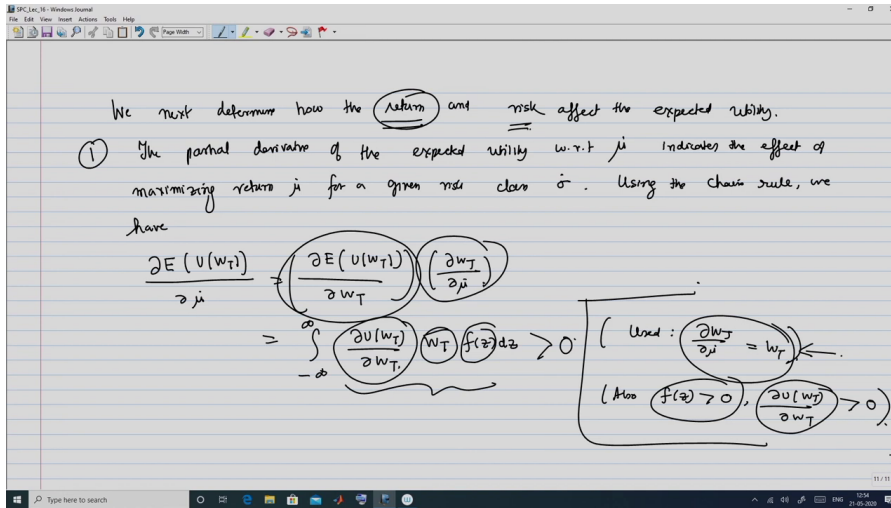 SPC_Lec_16 - Windows Journal
File Edit View Insert Actions Tools Help
Page Width
We next determine how the return and risk affect the expected utility.
① The partial derivative of the expected utility w.r.t μ̇ indicates the effect of
maximizing return μ̇ for a given risk class σ̇. Using the chain rule, we
have
∂E(U(W_T))/∂μ̇ = (∂E(U(W_T))/∂W_T) (∂W_T/∂μ̇)
= ∫_{-∞}^{∞} ∂U(W_T)/∂W_T W_T f(z) dz > 0
( Used : ∂W_T/∂μ̇ = W_T )
(Also f(z) > 0, ∂U(W_T)/∂W_T > 0)
11 / 11
Type here to search
ENG
12:54
21-05-2020